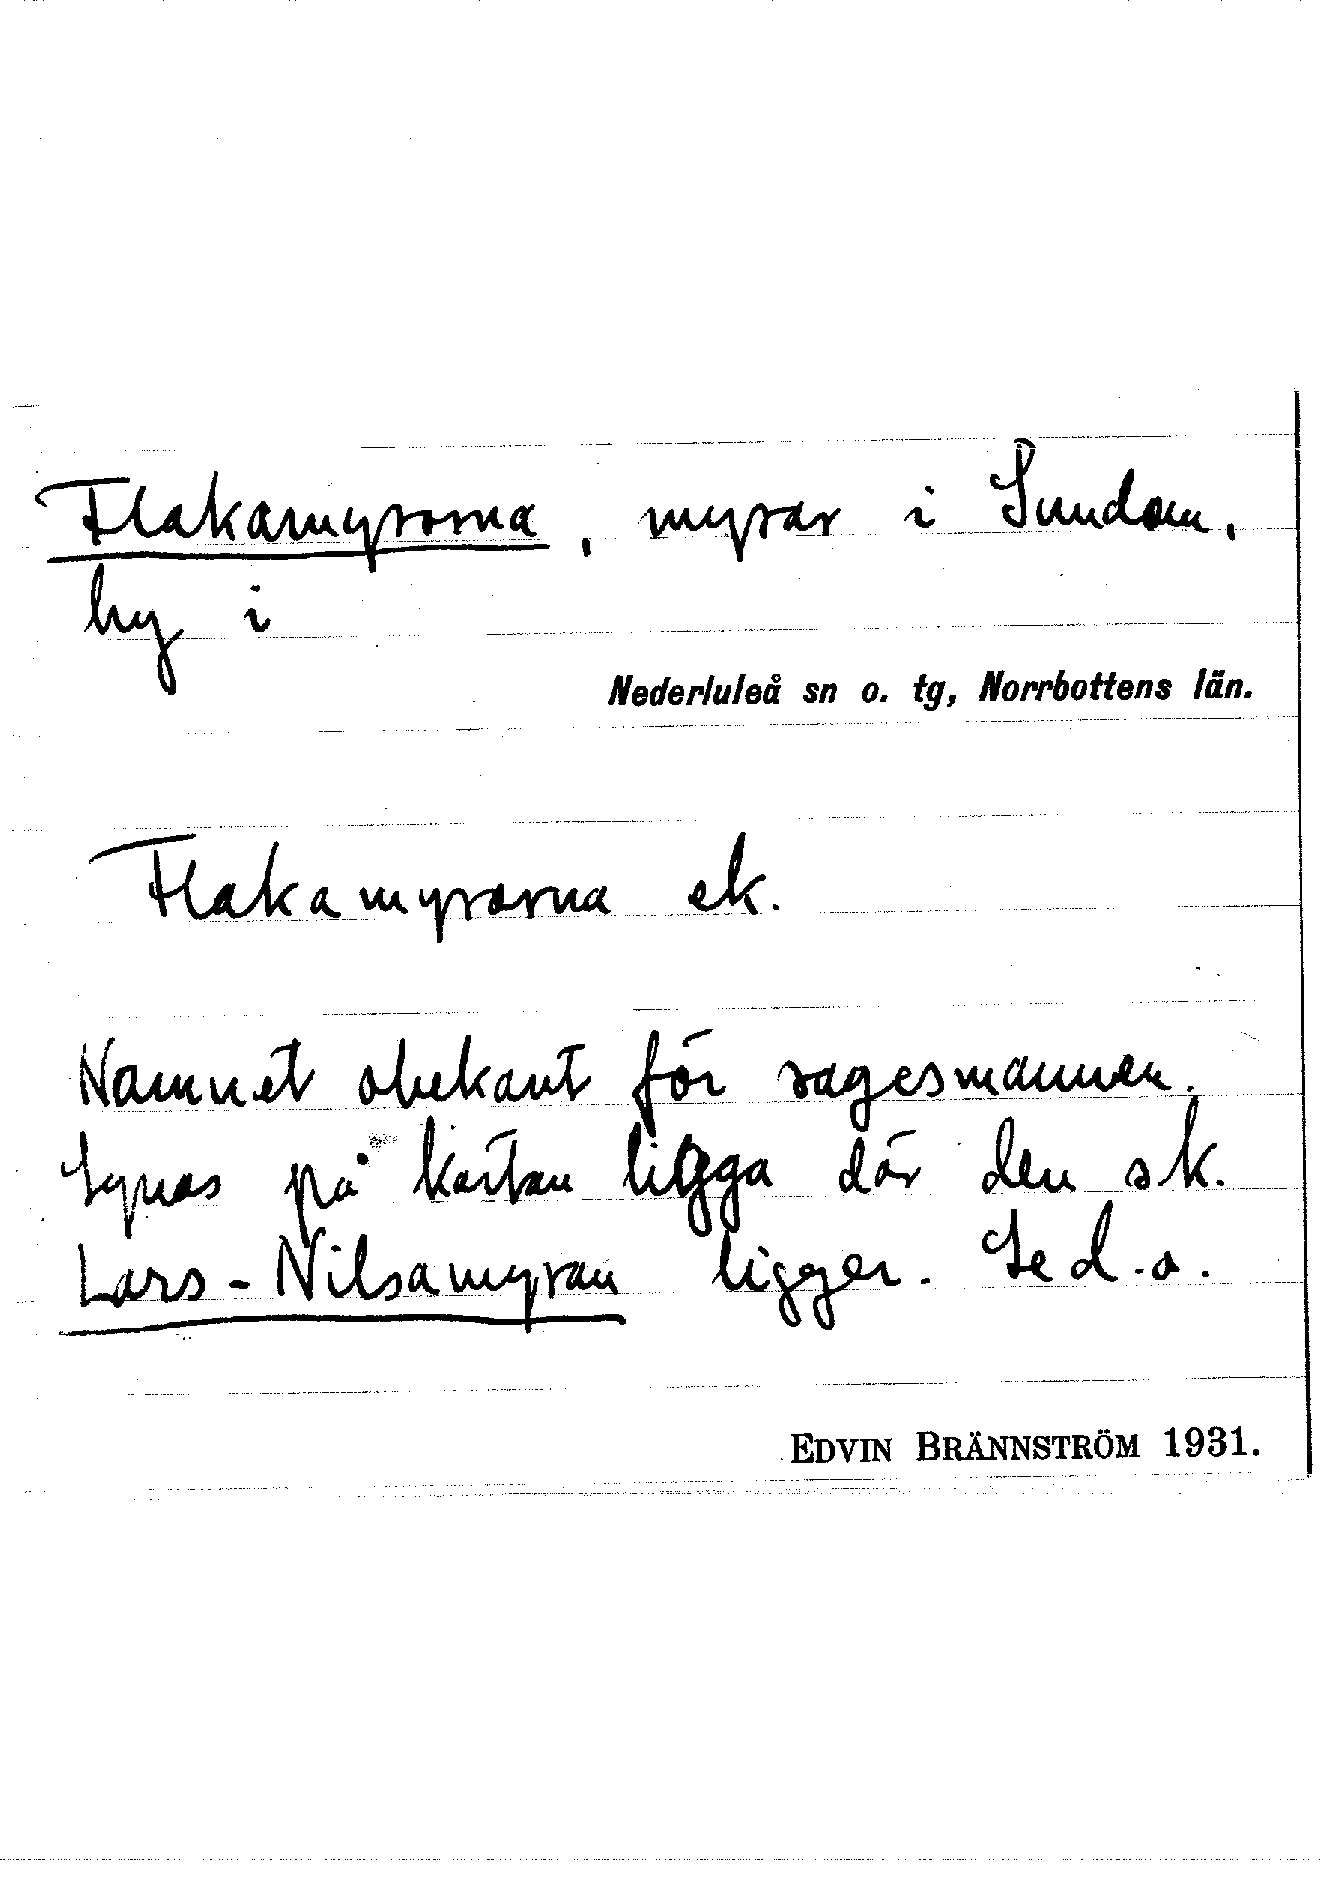 Flakamyrarna, myrar i Sundom,
by i
Nederluleå sn o. tg, Norrbottens län.
Flakamyrarna ek.
Namnet obekant för sagesmannen.
Synes på kartan ligga där den sk.
Lars-Nilsamyran ligger. Se d.o.
EDVIN BRÄNNSTRÖM 1931.